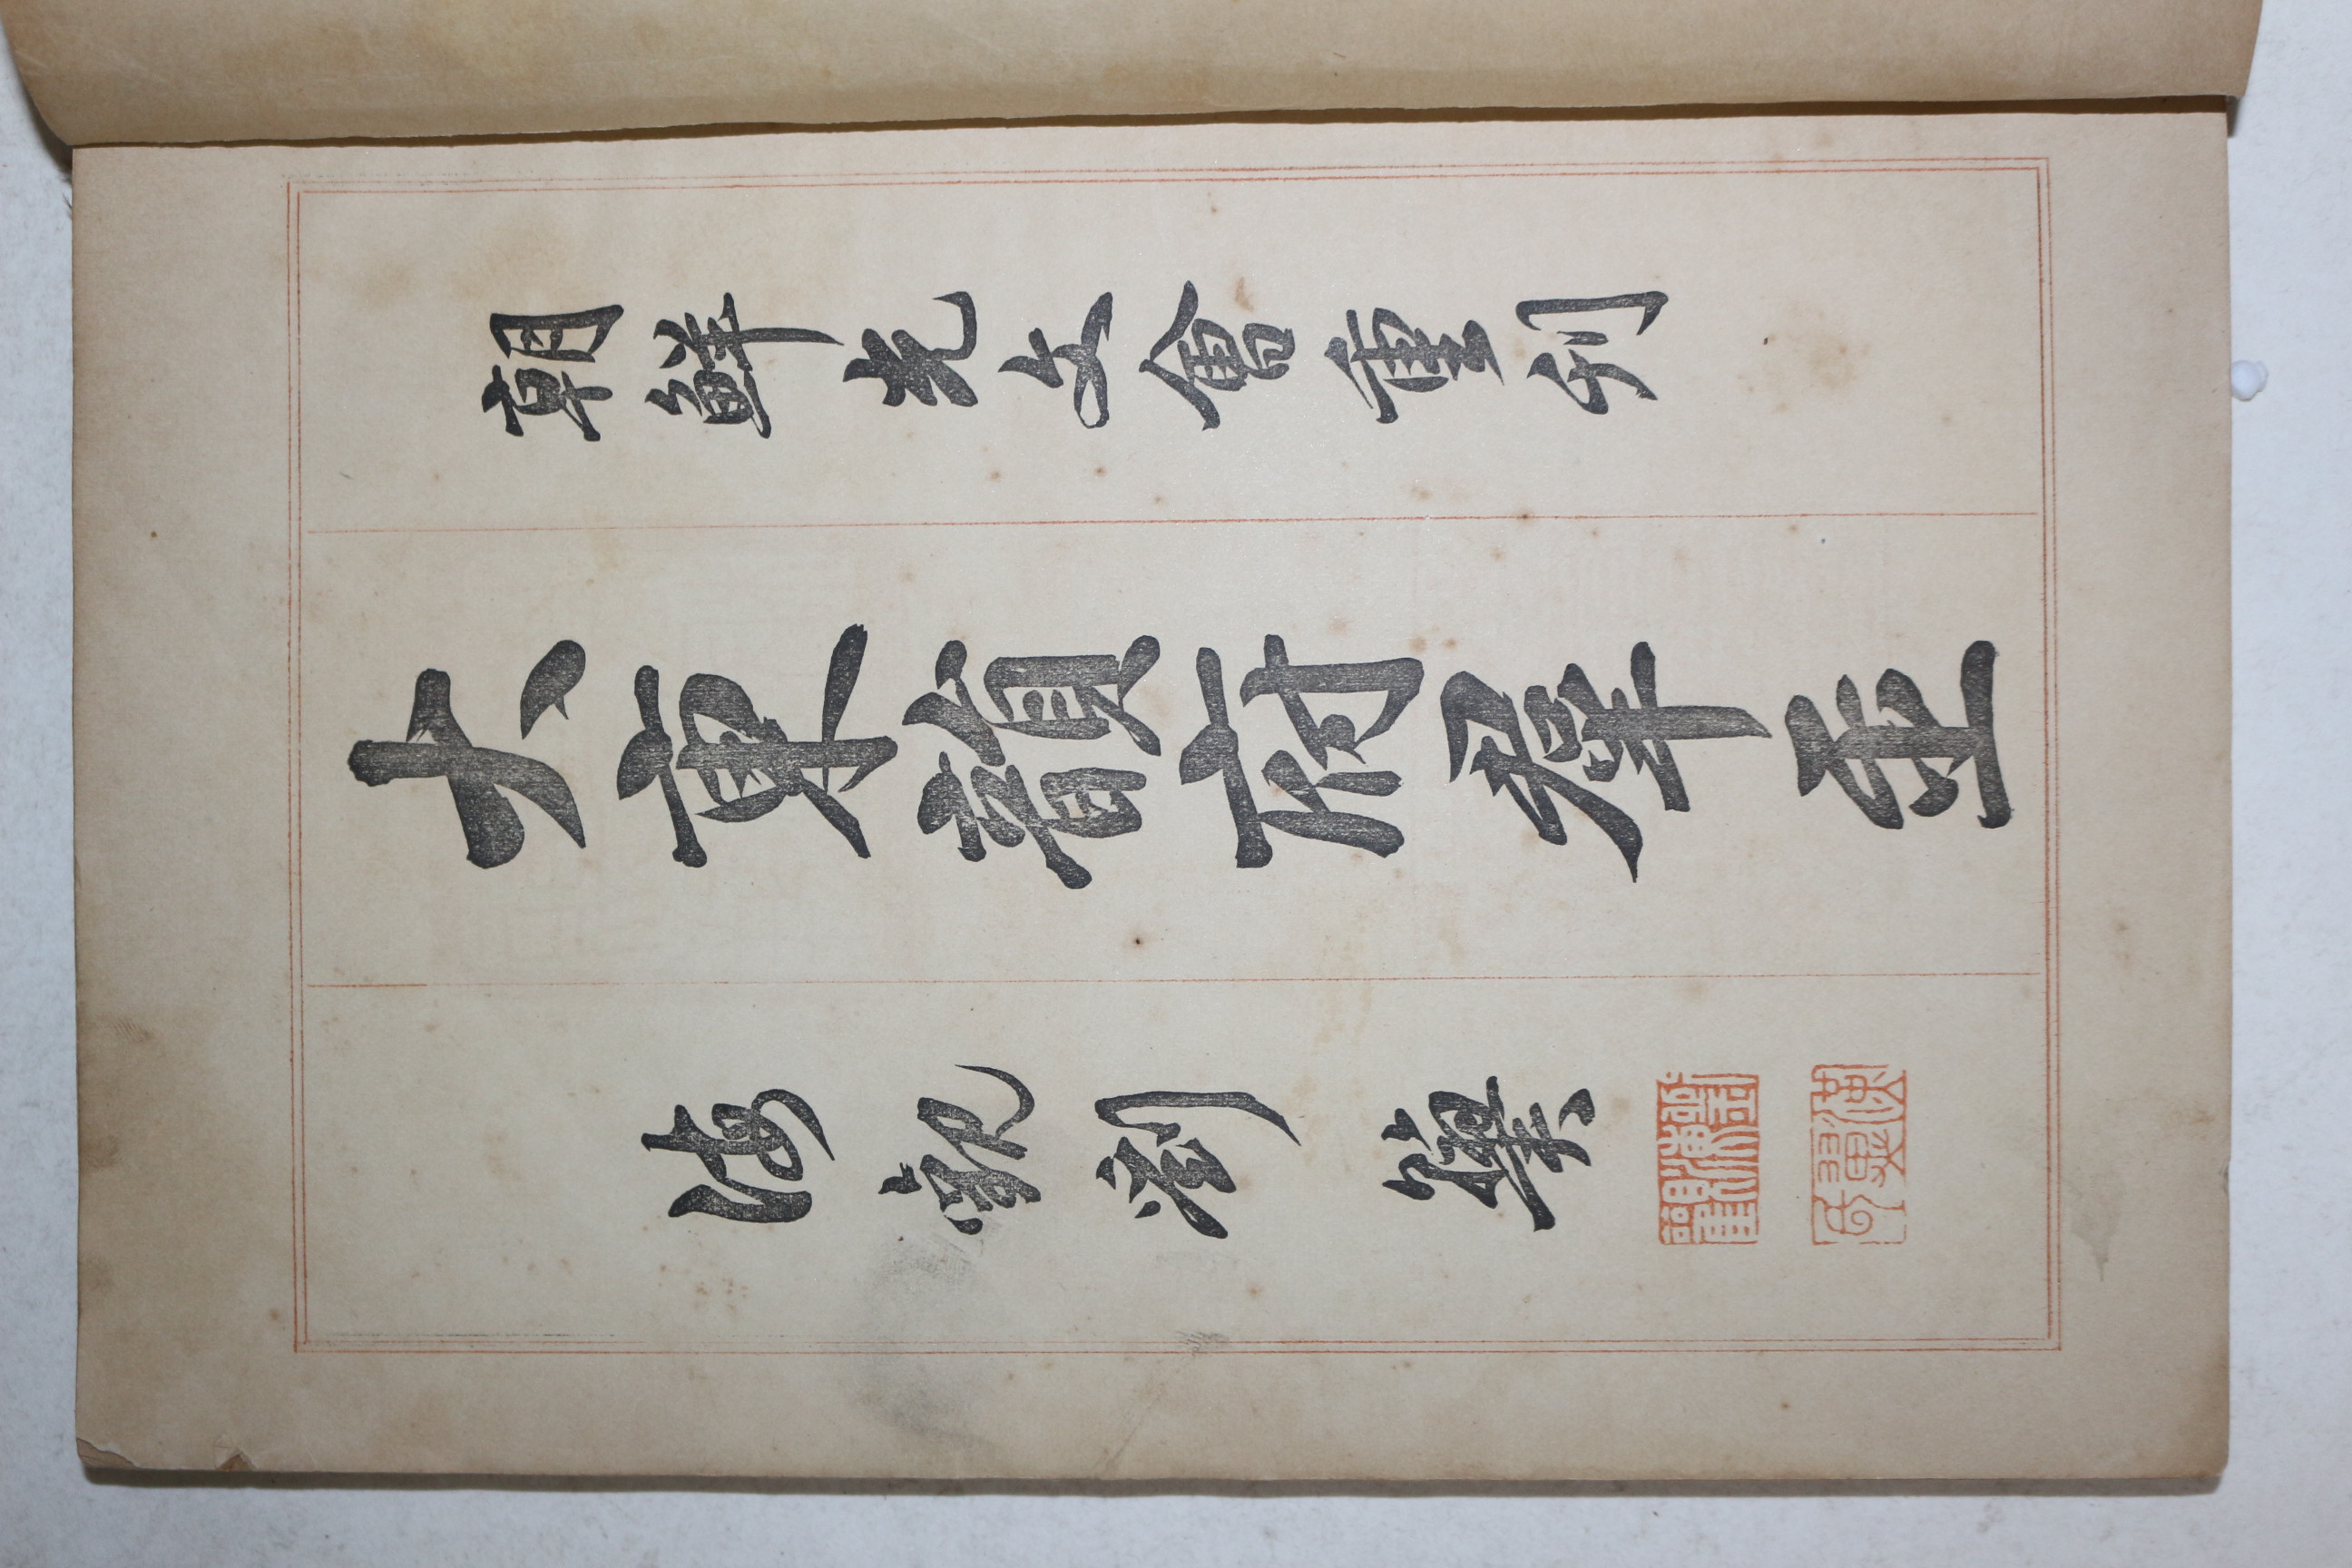 朝鮮光文會重刊
大東韻府羣玉
海觀劉
劉海觀
漢翼氏